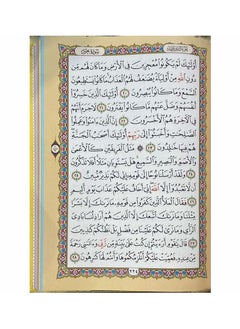 سُورَةُ هُودٍ
أُوْلَٰٓئِكَ لَمْ يَكُونُوا۟ مُعْجِزِينَ فِى ٱلْأَرْضِ وَمَا كَانَ لَهُم مِّن
دُونِ ٱللَّهِ مِنْ أَوْلِيَآءَ يُضَٰعَفُ لَهُمُ ٱلْعَذَابُ مَا كَانُوا۟ يَسْتَطِيعُونَ
ٱلسَّمْعَ وَمَا كَانُوا۟ يُبْصِرُونَ ٢٠ أُوْلَٰٓئِكَ ٱلَّذِينَ خَسِرُوٓا۟
أَنفُسَهُمْ وَضَلَّ عَنْهُم مَّا كَانُوا۟ يَفْتَرُونَ ٢١ لَا جَرَمَ أَنَّهُمْ
فِى ٱلْءَاخِرَةِ هُمُ ٱلْأَخْسَرُونَ ٢٢ إِنَّ ٱلَّذِينَ ءَامَنُوا۟ وَعَمِلُوا۟
ٱلصَّٰلِحَٰتِ وَأَخْبَتُوٓا۟ إِلَىٰ رَبِّهِمْ أُوْلَٰٓئِكَ أَصْحَٰبُ ٱلْجَنَّةِ
هُمْ فِيهَا خَٰلِدُونَ ٢٣ مَثَلُ ٱلْفَرِيقَيْنِ كَٱلْأَعْمَىٰ
وَٱلْأَصَمِّ وَٱلْبَصِيرِ وَٱلسَّمِيعِ هَلْ يَسْتَوِيَانِ مَثَلًا أَفَلَا تَذَكَّرُونَ
٢٤ وَلَقَدْ أَرْسَلْنَا نُوحًا إِلَىٰ قَوْمِهِۦٓ إِنِّى لَكُمْ نَذِيرٌ مُّبِينٌ ٢٥
أَن لَّا تَعْبُدُوٓا۟ إِلَّا ٱللَّهَ إِنِّىٓ أَخَافُ عَلَيْكُمْ عَذَابَ يَوْمٍ أَلِيمٍ
٢٦ فَقَالَ ٱلْمَلَأُ ٱلَّذِينَ كَفَرُوا۟ مِن قَوْمِهِۦ مَا نَرَىٰكَ إِلَّا بَشَرًا
مِّثْلَنَا وَمَا نَرَىٰكَ ٱتَّبَعَكَ إِلَّا ٱلَّذِينَ هُمْ أَرَاذِلُنَا بَادِىَ
ٱلرَّأْىِ وَمَا نَرَىٰ لَكُمْ عَلَيْنَا مِن فَضْلٍۭ بَلْ نَظُنُّكُمْ كَٰذِبِينَ
٢٧ قَالَ يَٰقَوْمِ أَرَءَيْتُمْ إِن كُنتُ عَلَىٰ بَيِّنَةٍ مِّن رَّبِّى وَءَاتَىٰنِى رَحْمَةً
مِّنْ عِندِهِۦ فَعُمِّيَتْ عَلَيْكُمْ أَنُلْزِمُكُمُوهَا وَأَنتُمْ لَهَا كَٰرِهُونَ ٢٨
٢٢٤